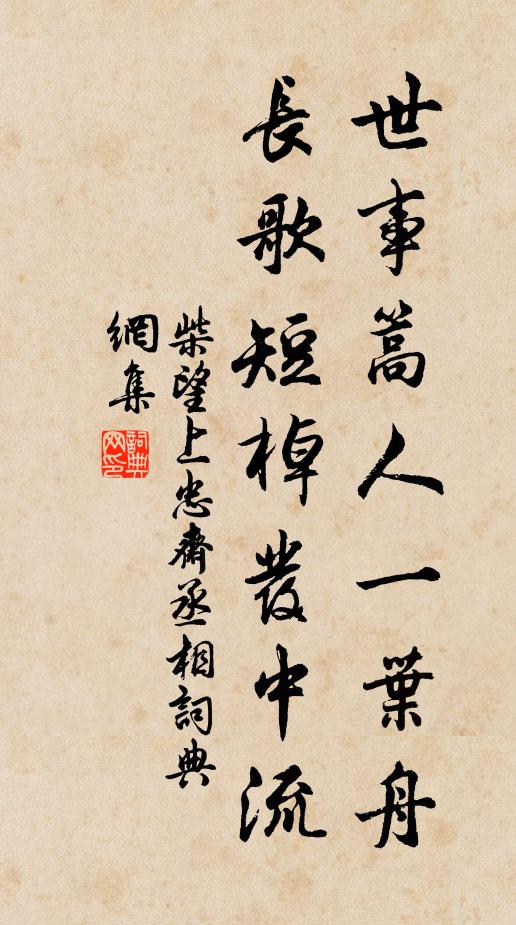 世事篙人一葉舟
長歌短棹發中流
柴望上忠齋丞相詞典
網集
詞典
网印